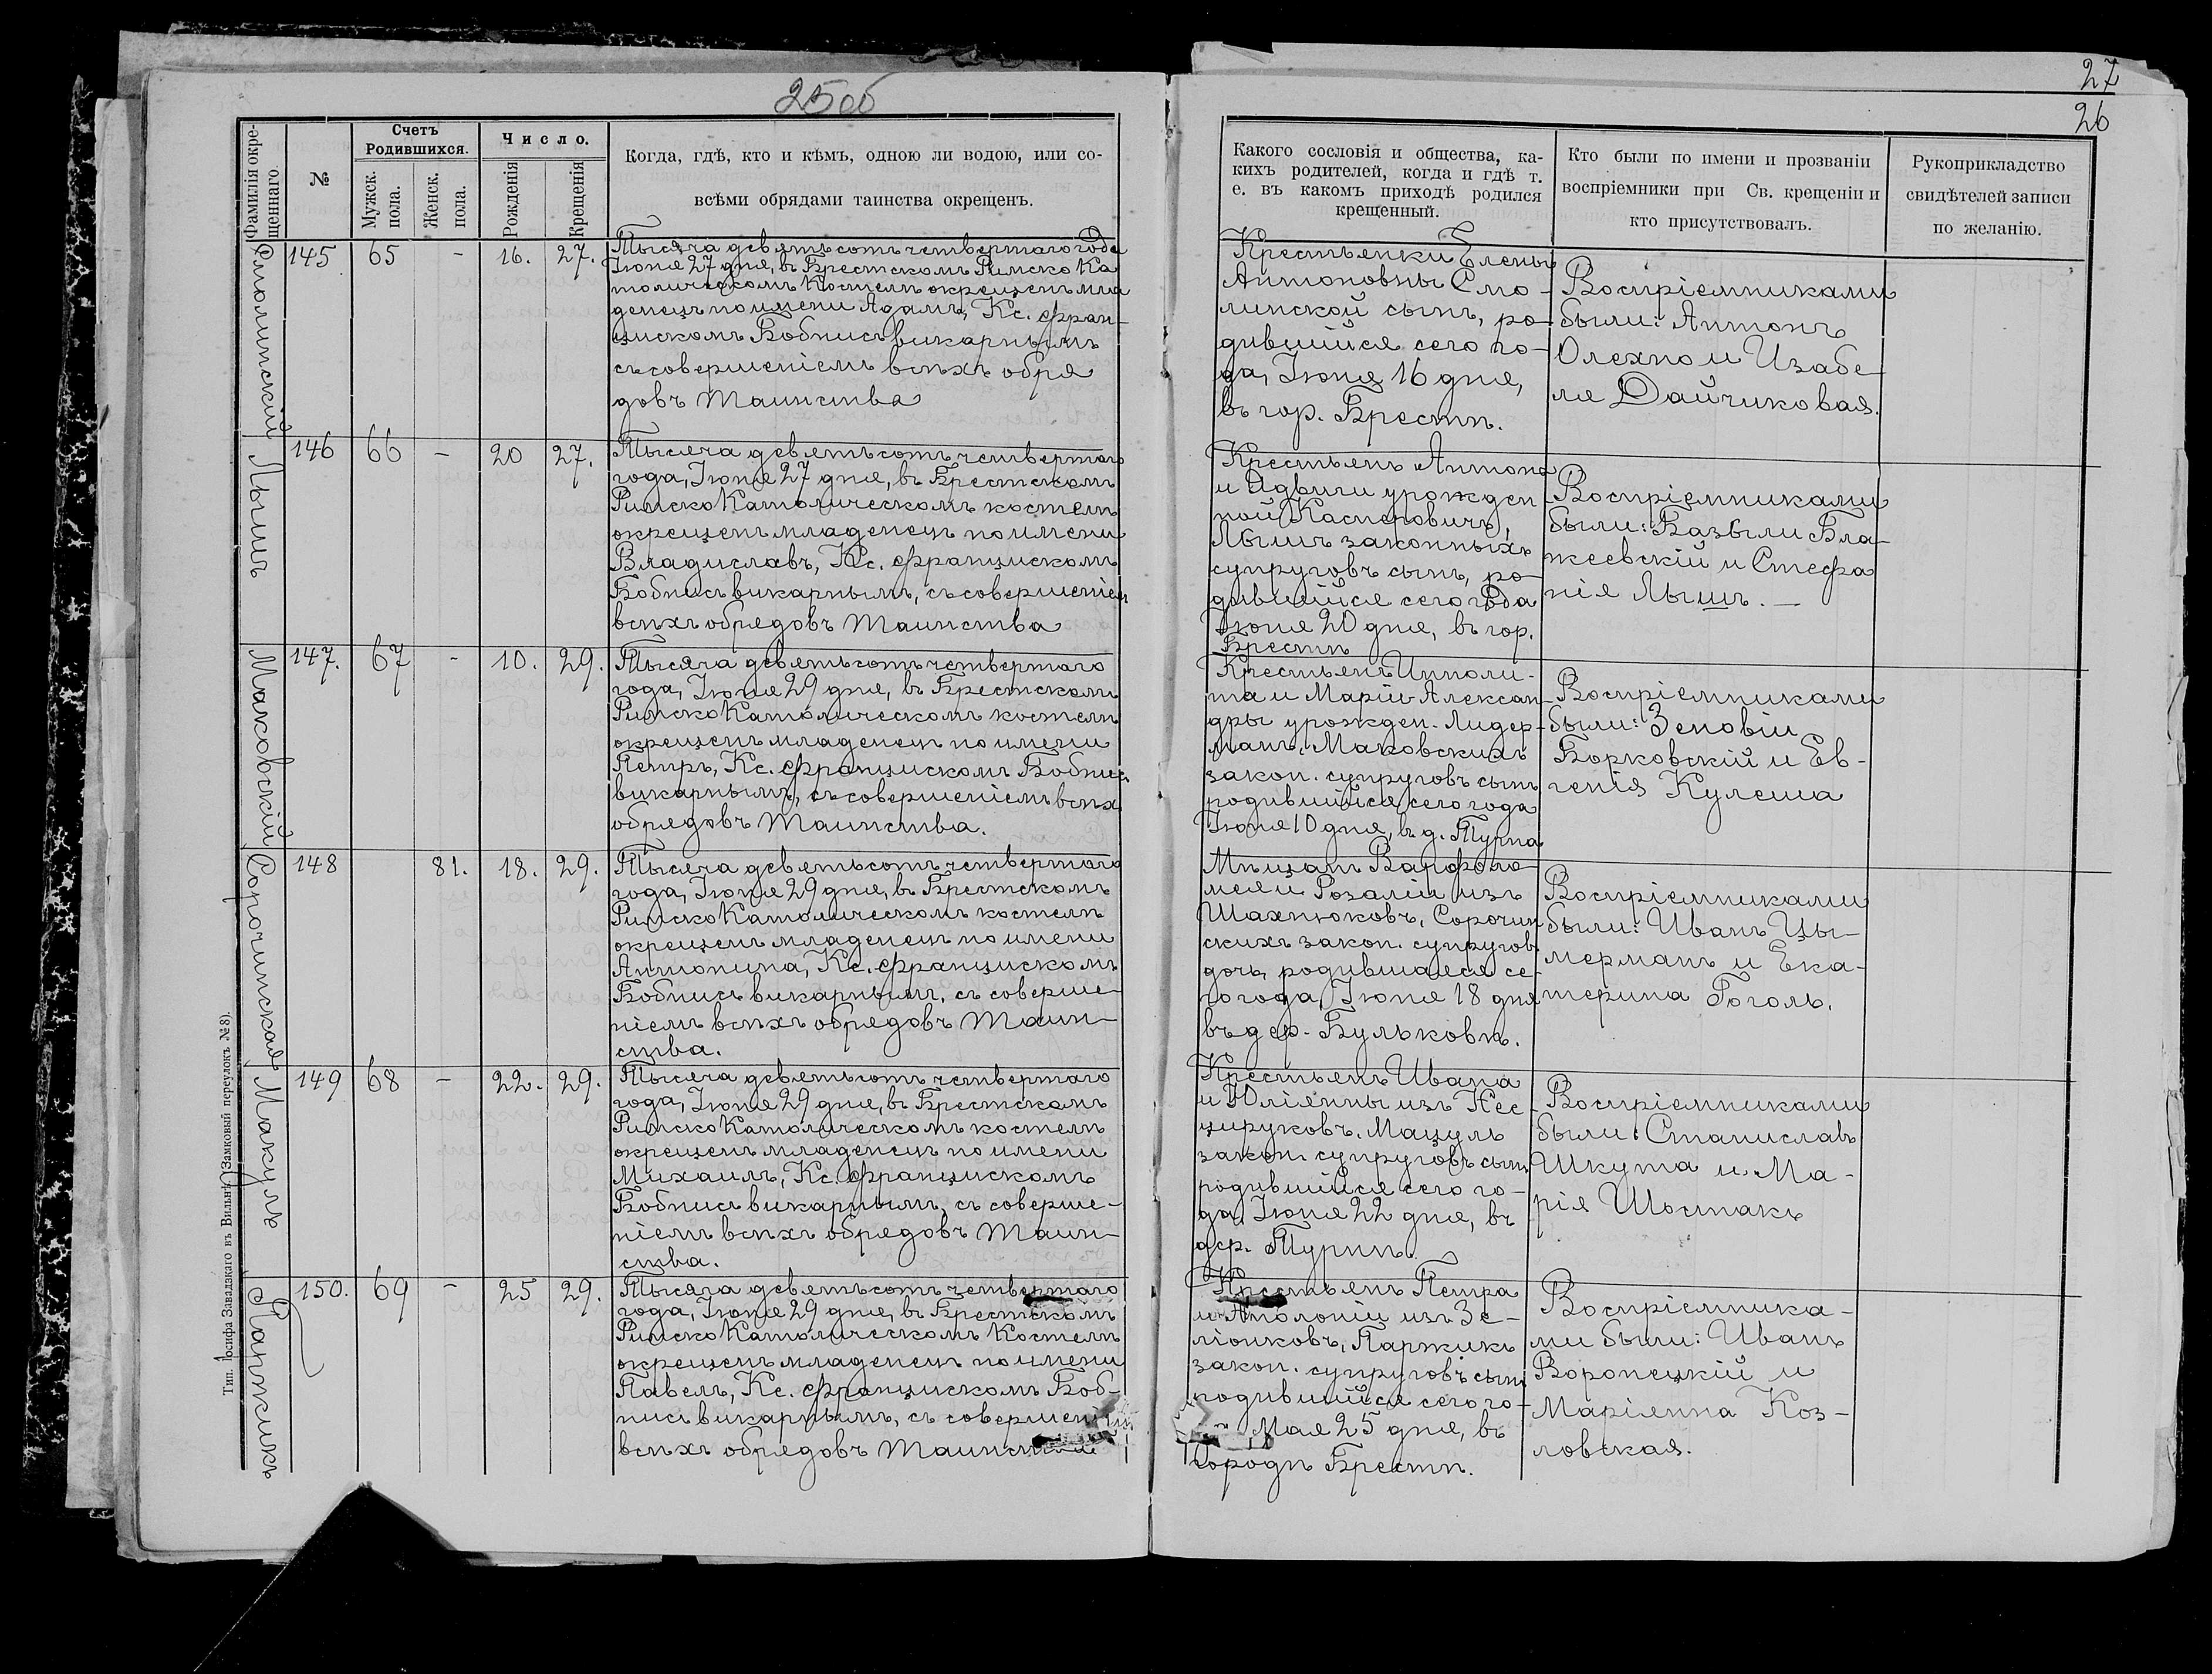 25об
27
26
Фамилія окре-
щеннаго.
№
Счетъ
Родившихся.
Мужск.
пола.
Женск.
пола.
Число.
Рожденія
Крещенія
Когда, гдѣ, кто и кѣмъ, одною ли водою, или со-
всѣми обрядами таинства окрещенъ.
Какого сословія и общества, ка-
кихъ родителей, когда и гдѣ т.
е. въ какомъ приходѣ родился
крещенный.
Кто были по имени и прозванію
воспріемники при Св. крещеніи и
кто присутствовалъ.
Рукоприкладство
свидѣтелей записи
по желанію.
Смолинскій
145 65 - 16. 27.
Тысяча девятьсотъ четвертаго года
Іюня 27 дня, въ Брестскомъ Римско Ка
толическомъ Костелѣ окрещенъ мла
денецъ по имени Адамъ, Кс. Фран-
цискомъ Бобнисъ викарнымъ
съ совершеніемъ всѣхъ обря
довъ Таинства
Крестьянки Елены
Антоновны Смо-
линской сынъ, ро-
дившійся сего го-
да, Іюня 16 дня,
въ гор. Брестѣ.
Воспріемниками
были: Антонъ
Олехно и Изабе-
ля Дайчиковая.
Лышъ
146 66 - 20 27.
Тысяча девятьсотъ четвертаго
года, Іюня 27 дня, въ Брестскомъ
Римско Католическомъ костелѣ
окрещенъ младенецъ по имени
Владиславъ, Кс. Францискомъ
Бобнисъ викарнымъ, съ совершеніем
всѣхъ обрядовъ Таинства
Крестьянъ Антона
и Ядвиги урожден
ной Касперовичъ,
Лышъ законныхъ
супруговъ сынъ, ро-
дившійся сего года
Іюня 20 дня, въ гор.
Брестѣ
Воспріемниками
были: Базыли Бла-
жеевскій и Стефа
нія Лышъ. —
Маковскій
147. 67 - 10. 29.
Тысяча девятьсотъ четвертаго
года, Іюня 29 дня, въ Брестскомъ
Римско Католическомъ костелѣ
окрещенъ младенецъ по имени
Петръ, Кс. Францискомъ Бобнис.
викарнымъ, съ совершеніемъ всѣх
обрядовъ Таинства.
Крестьянъ Ипполи-
та и Маріи-Алексан-
дры урожден. Лидер-
манъ, Маковскихъ
закон. супруговъ сынъ
родившійся сего года
Іюня 10 дня, въ д. Турна
Воспріемниками
были: Зеновій
Борковскій и Ев-
генія Кулеша
Сорочинская
148 81. 18. 29.
Тысяча девятьсотъ четвертаго
года, Іюня 29 дня, въ Брестскомъ
Римско Католическомъ костелѣ
окрещенъ младенецъ по имени
Антонина, Кс. Францискомъ
Бобнисъ викарнымъ, съ соверше-
ніемъ всѣхъ обрядовъ Таин-
ства.
Мѣщанъ Варфоло-
мея и Розаліи изъ
Шахнюковъ, Сорочин
скихъ закон. супруговъ
дочь, родившаяся се-
го года, Іюня 18 дня
въ дер. Бульковѣ.
Воспріемниками
были: Иванъ Цы-
мерманъ и Ека-
терина Гоголь.
Макуль
149 68 - 22. 29.
Тысяча девятьсотъ четвертаго
года, Іюня 29 дня, въ Брестскомъ
Римско Католическомъ костелѣ
окрещенъ младенецъ по имени
Михаилъ, Кс. Францискомъ
Бобнисъ викарнымъ, съ соверше-
ніемъ всѣхъ обрядовъ Таин-
ства.
Крестьянъ Ивана
и Юліянны изъ Нес-
цируковъ, Мацуль
закон. супруговъ сынъ
родившійся сего го-
да, Іюня 22 дня, въ
дер. Турнѣ.
Воспріемниками
были: Станиславъ
Шкута и Ма-
рія Шостакъ
Паржикъ
150. 69 - 25 29.
Тысяча девятьсотъ четвертаго
года, Іюня 29 дня, въ Брестскомъ
Римско Католическомъ Костелѣ
окрещенъ младенецъ по имени
Павелъ, Кс. Францискомъ Боб-
нисъ викарнымъ, съ совершен
всѣхъ обрядовъ Таинства
Крестьянъ Петра
и Аполоніи изъ Зе-
ліонковъ, Паржикъ
закон. супруговъ сынъ
родившійся сего го-
Мая 25 дня, въ
городѣ Брестѣ.
Воспріемника-
ми были: Иванъ
Воронецкій и
Маріянна Коз-
ловская.
Тип. Іосифа Завадзкаго въ Вильнѣ (Замковый переулокъ №8).